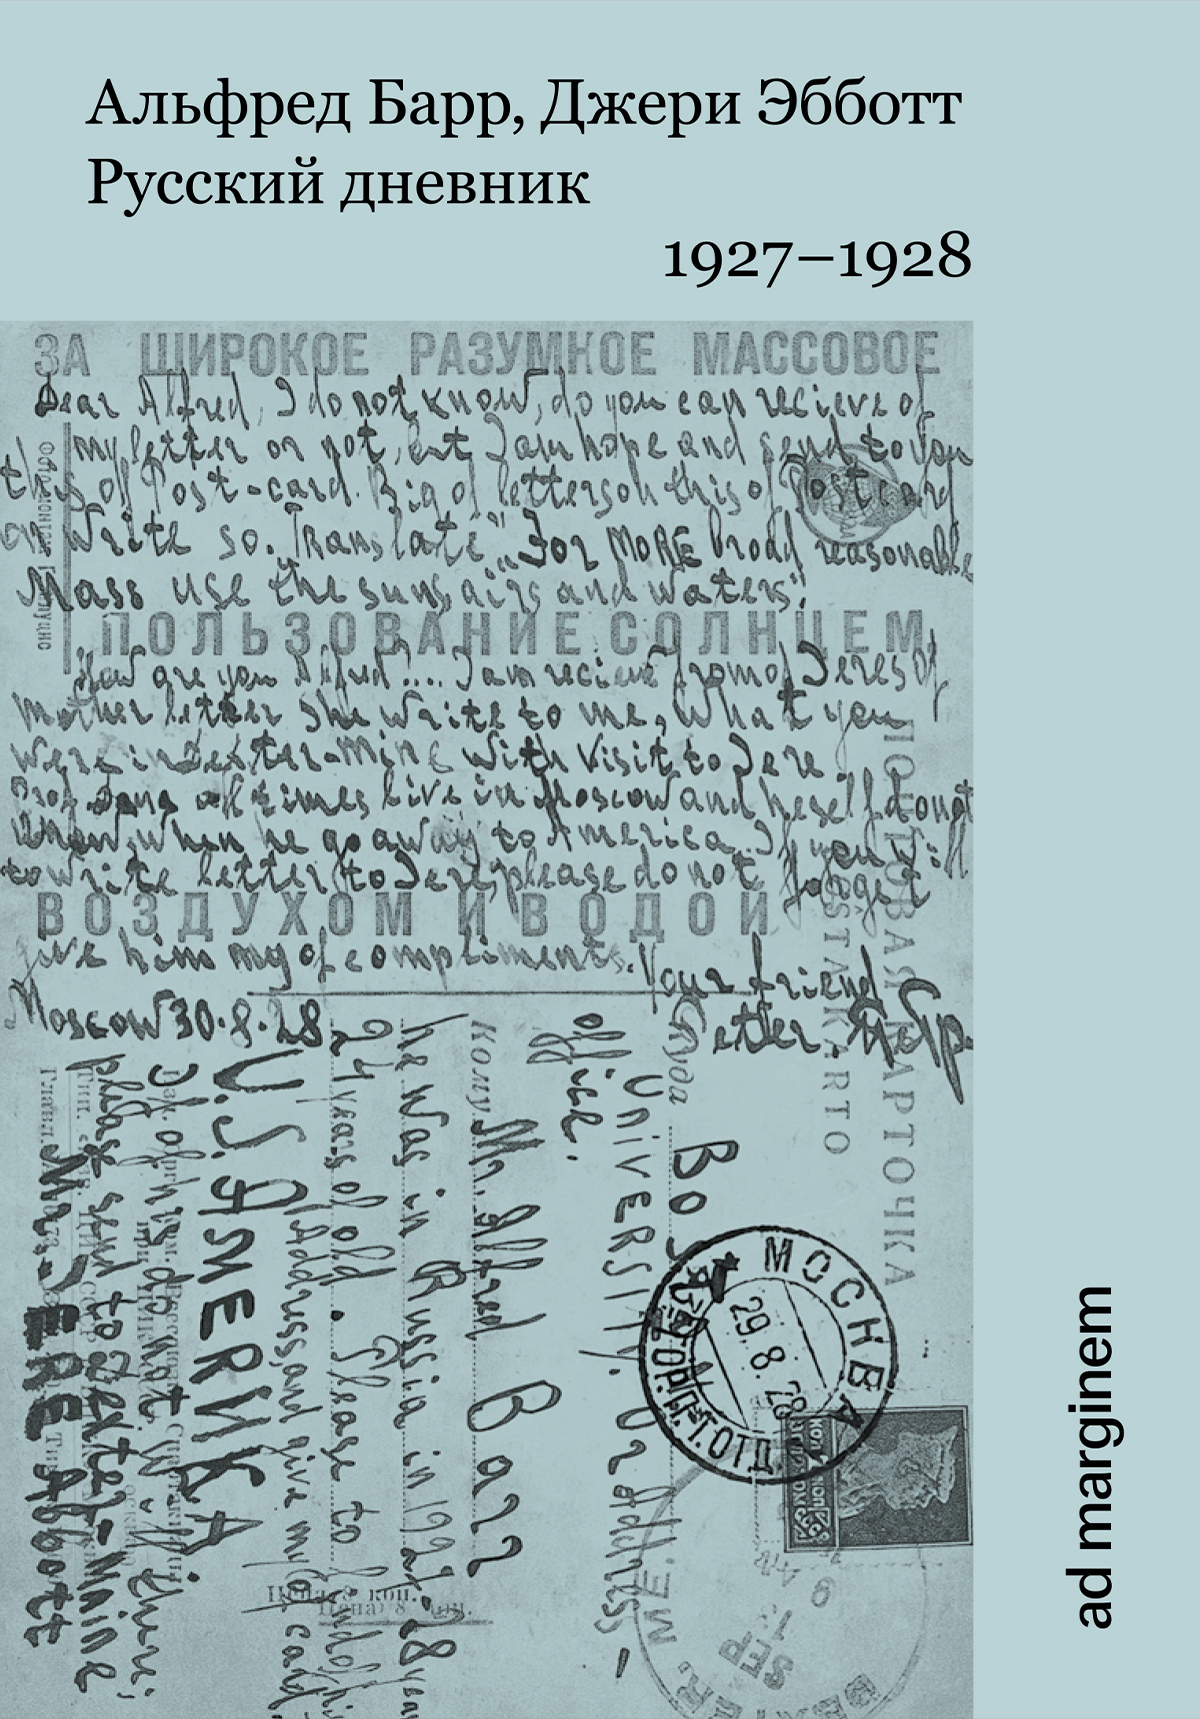 Альфред Барр, Джери Эбботт
Русский дневник
1927–1928
ЗА ШИРОКОЕ РАЗУМНОЕ МАССОВОЕ
Dear Alfred, I do not know, do you can recieve of
my letter or not, but I am hope and send to you
this of Post-card. Big of letters on this of Postcard
Write so. Translate "For MORE broad reasonable
Mass use the suns, airs and waters".
ПОЛЬЗОВАНИЕ СОЛНЦЕМ
How are you Alfred.... I am recieve from of Jeres of
mother letter she write to me, what you
were in Dexter-Mine with visit to Jere.
all times live in Moscow and heself do not
know, when he go away to America. If you will
to write letter to Jere, please do not forget
ВОЗДУХОМ И ВОДОЙ
give him my of compliments. Your friend
Moscow 30.8.28
ПОЧТОВАЯ КАРТОЧКА
POSTAKARTO
Куда
UNIVERSITY. Or address –
office.
Кому M. Alfred Barr
he was in Russia in 1927-28 year
24 years of old. Please to find of his
Address, and give my of card
U.S. AMERIKA
please send to Dexter-Maine
Mr. JERE Abbott
МОСКВА
29.8.28
Цена 8 коп.
SEP
ad marginem